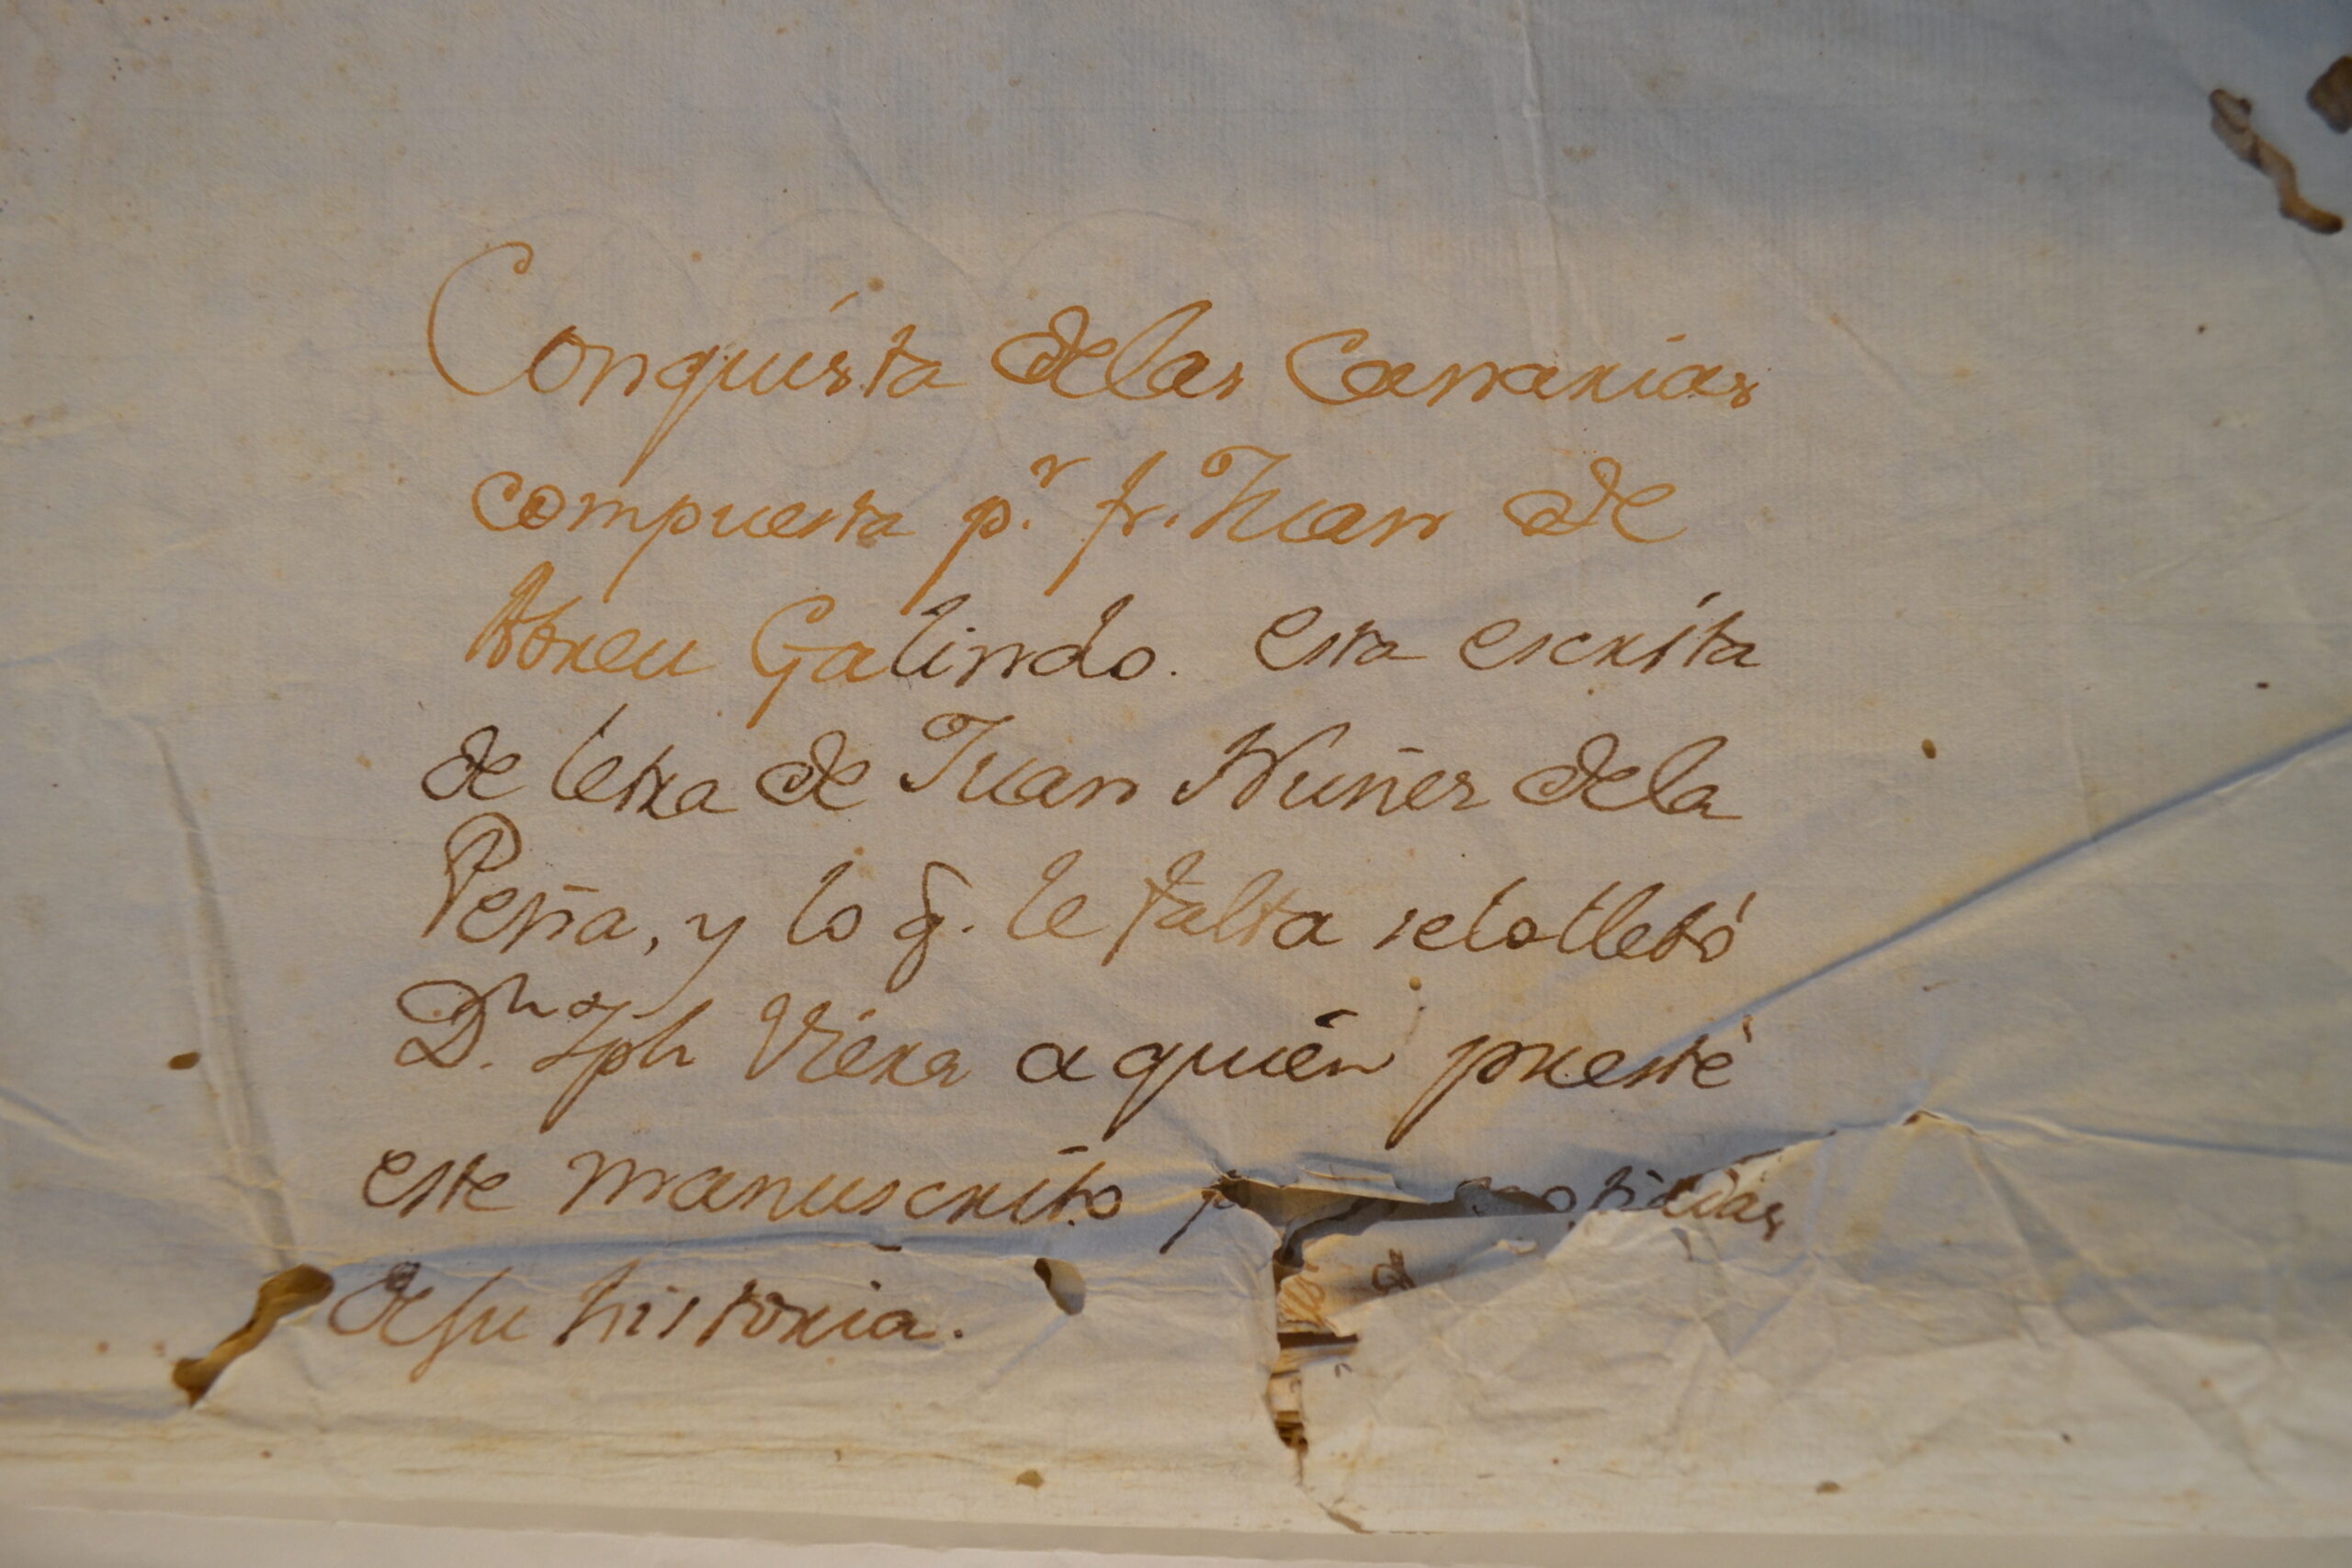 Conquista delas Canarias
compuesta p.r fr. Juan de
Abreu Galindo. esta escrita
de letra de Juan Nuñes dela
Peña, y lo q̃. le falta selo llebó
D.n Jph Viera a quien presté
este manuscrito noticias
desu historia.